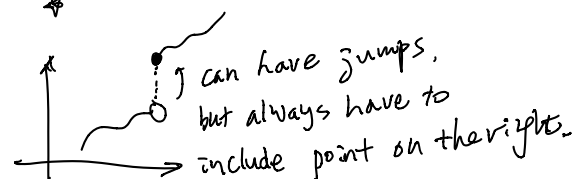 can have jumps,
but always have to
include point on the right.